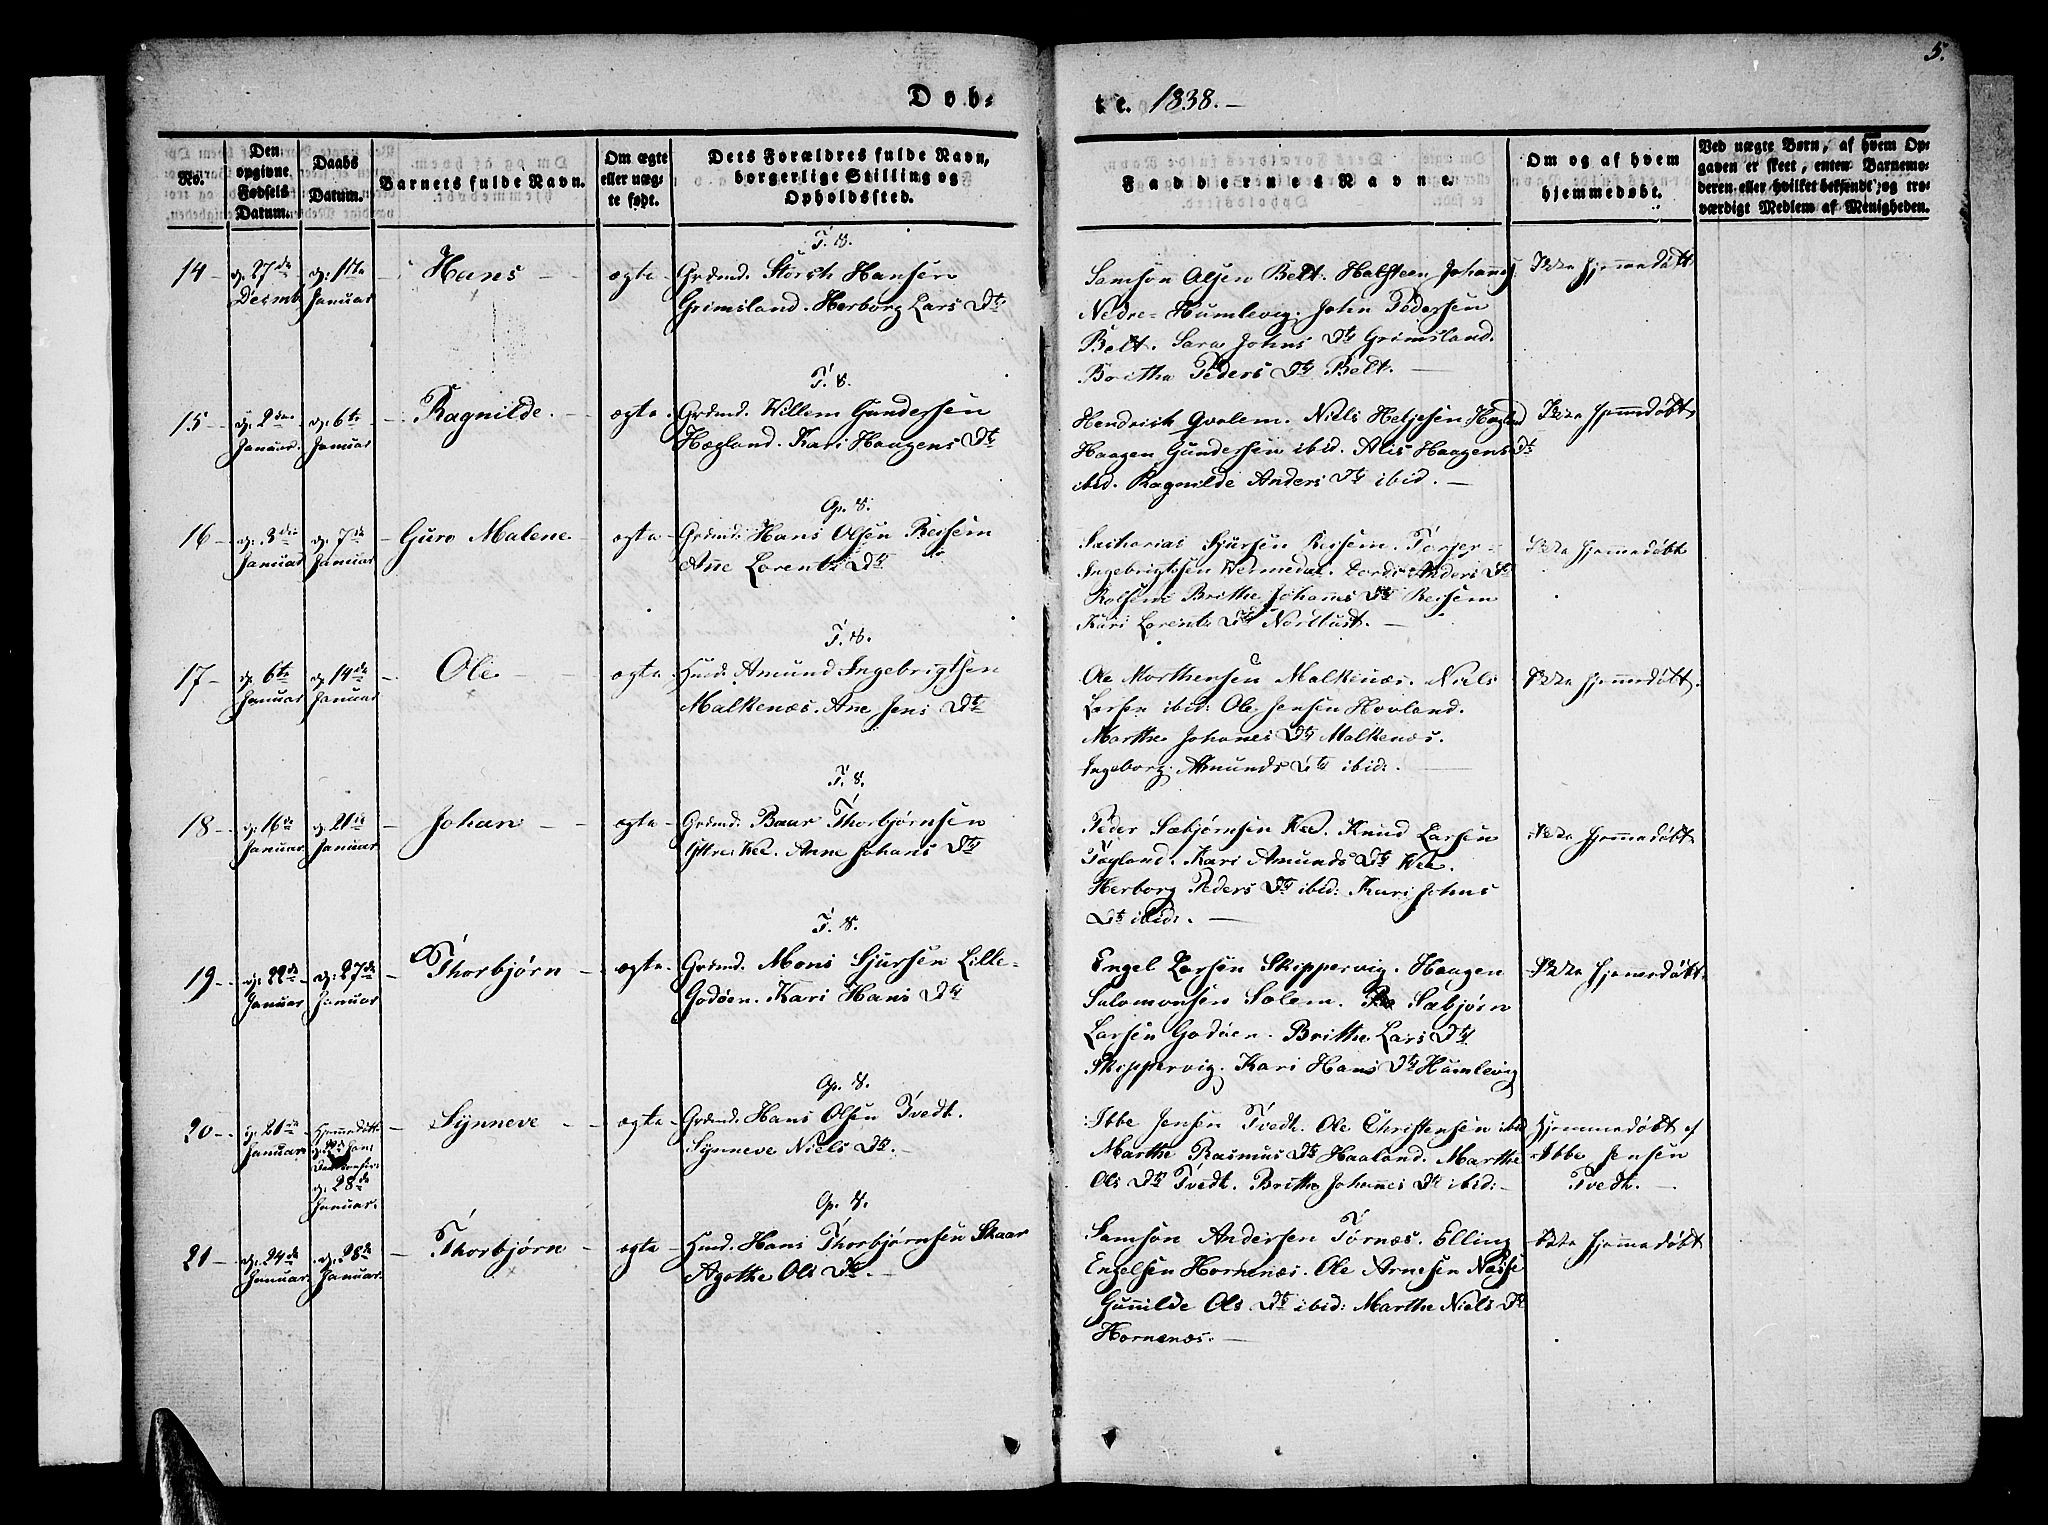 5.
Døb-
te. 1838.-
No.
Den
opgivne
Fødsels
Datum.
Daabs
Datum.
Barnets fulde Navn.
Om ægte
eller uæg-
te født.
Dets Forældres fulde Navn,
borgerlige Stilling og
Opholdssted.
Faddernes Navne.
Om og af hvem
hjemmedøbt.
Ved uægte Børn, af hvem Op-
gaven er skeet, enten Barnemo-
deren eller hvilket bekjendt og tro-
værdigt Medlem af Menigheden.
T. S.
14- d: 27de Decmb d: 1ste Januar Hans - ægte Grdmd. Storch Hansen
Grimsland. Herborg Lars Dtr
Samson Olsen Belt. Halsteen Johannes
Nedre-Humlevig. John Pedersen
Belt. Sara Johns Dtr Grimsland.
Britha Peders Dtr Belt. -
Ikke hjemmedøbt
T. S.
15 - d: 2den Januar. d: 6te Januar - Ragnilde. - ægte. Grdmd. Willem Gundersen
Hægland. Kari Haagens Dtr
Hendrich Qvalem. Niels Heljesen
Haagen Gundersen ibid. Alis Haagens Dtr
ibid. Ragnilde Anders Dtr ibid. -
Ikke hjemmedøbt
16 - d: 3die Januar d: 7de Januar - Guro Malene - ægte Grdmd. Hans Olsen Reisem
Anne Lorents Dtr
Sacharias Sjursen Reisem. Torger
Ingebrigtsen Anders Dtr
Britha Johanns Dtr Reisem
Kari Lorents Dtr
Ikke hjemmedøbt
T. S.
17 - d: 6te Januar d: 14de Januar -. Ole - ægte Hmd. Amund Ingebrigtsen
Malkenæs. Anne Jens Dtr
Ole Morthensen Malkenæs. Niels
Larsen ibid: Ole Jensen Hovland.
Marthe Johanes Dtr Malkenæs.
Ingeborg Amunds Dtr ibid:. -
Ikke hjemmedøbt.
T. S.
18 - d: 16de Januar d: 21de Januar - Johan - ægte Grdmd. Baar Thorbjørnsen
Yttre Vee. Anne Johans Dtr
Peder Sæbjørnsen Vee. Knud Larsen
Kari Amunds Dtr Vee.
Herborg Peders Dtr ibid: Kari Johns
Dtr ibid:. -
Ikke hjemmedøbt
T. S.
19 - d: 22de Januar d: 27de Januar - Thorbjørn - ægte Grdmd. Mons Sjursen Lille-
Godøen. Kari Hans Dtr
Engel Larsen Skippervig. Haagen
Salomonsen Solem. Sæbjørn
Larsen Godøen. Brithe Lars Dtr
Skippervig. Kari Hans Dtr Humlevig
Ikke hjemmedøbt
20 - d: 21de Januar Hjemmedøbt d: 28de Januar. - Synneve - ægte Grdmd. Hans Olsen Tvedt.
Synneve Niels Dtr. -
Ibbe Jensen Tvedt. Ole Christensen ibid
Marthe Rasmus Dtr Haaland. Marthe
Ols Dtr Tvedt. Brithe Johannes Dtr ibid: -
Hjemmedøbt af
Ibbe Jensen
Tvedt. -
21 - d: 24de Januar d: 28de Januar - Thorbjørn - ægte Hmd. Hans Thorbjørnsen Skaar
Agothe Ols Dtr. -
Samson Andersen Tornæs. Elling
Engelsen Hornenæs. Ole Arnesen
Gunnilde Ols Dtr ibid: Marthe Niels Dtr
Hornenæs. -
Ikke hjemmedøbt